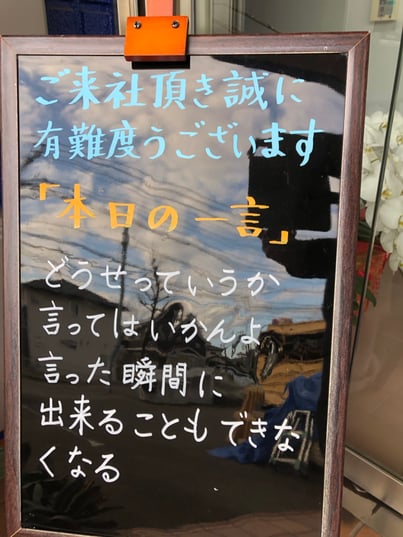 ご来社頂き誠に
有難度うございます
「本日の一言」
どうせっていうか
言ってはいかんよ
言った瞬間に
出来ることもできな
くなる